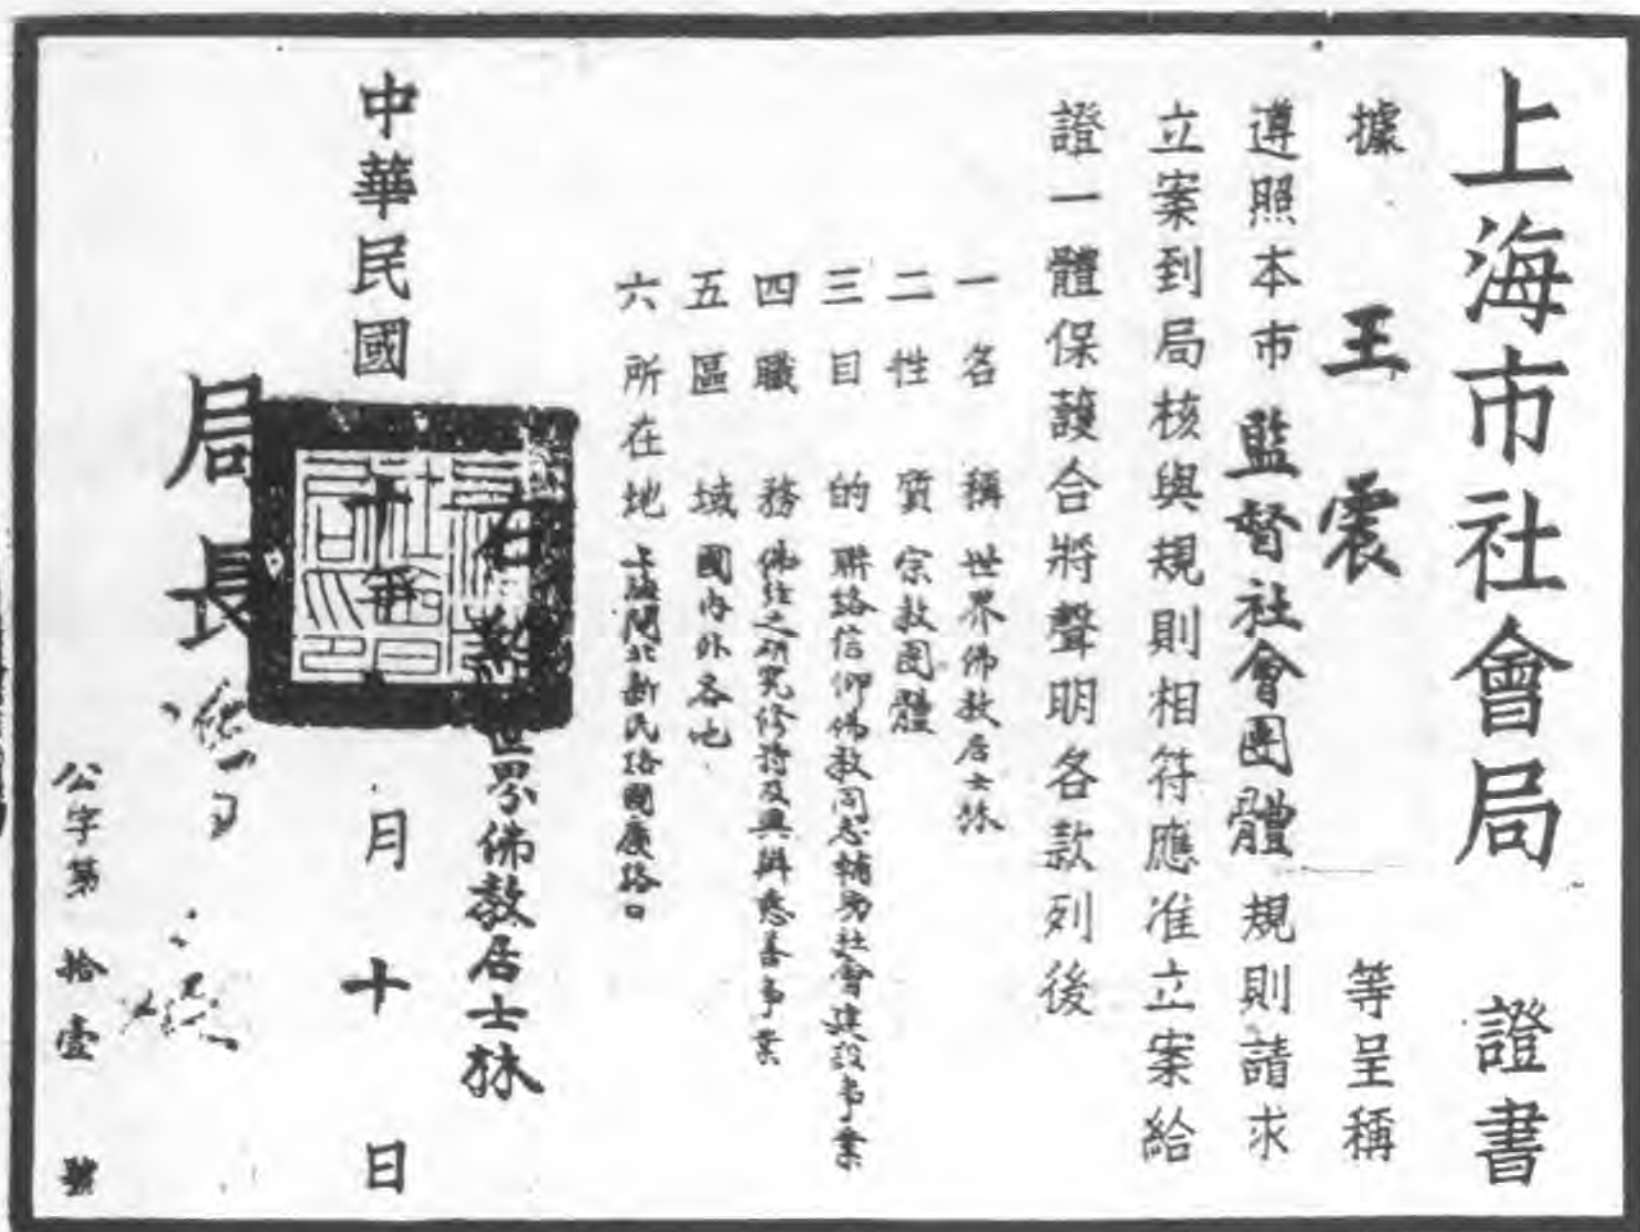 上海市社會局 證書
據 王震 等呈稱
遵照本市監督社會團體規則請求
立案到局核與規則相符應准立案給
證一體保護合將聲明各款列後
一名稱 世界佛教居士林
二性質 宗教團體
三目的 聯絡信仰佛教同志輔助社會建設事業
四職務 佛經之研究修持及興辦慈善事業
五區域 國內外各地
六所在地 上海閘北新民路國慶路口
右 世界佛教居士林
中華民國 十 月 十 日
局長
公字第 拾壹 號